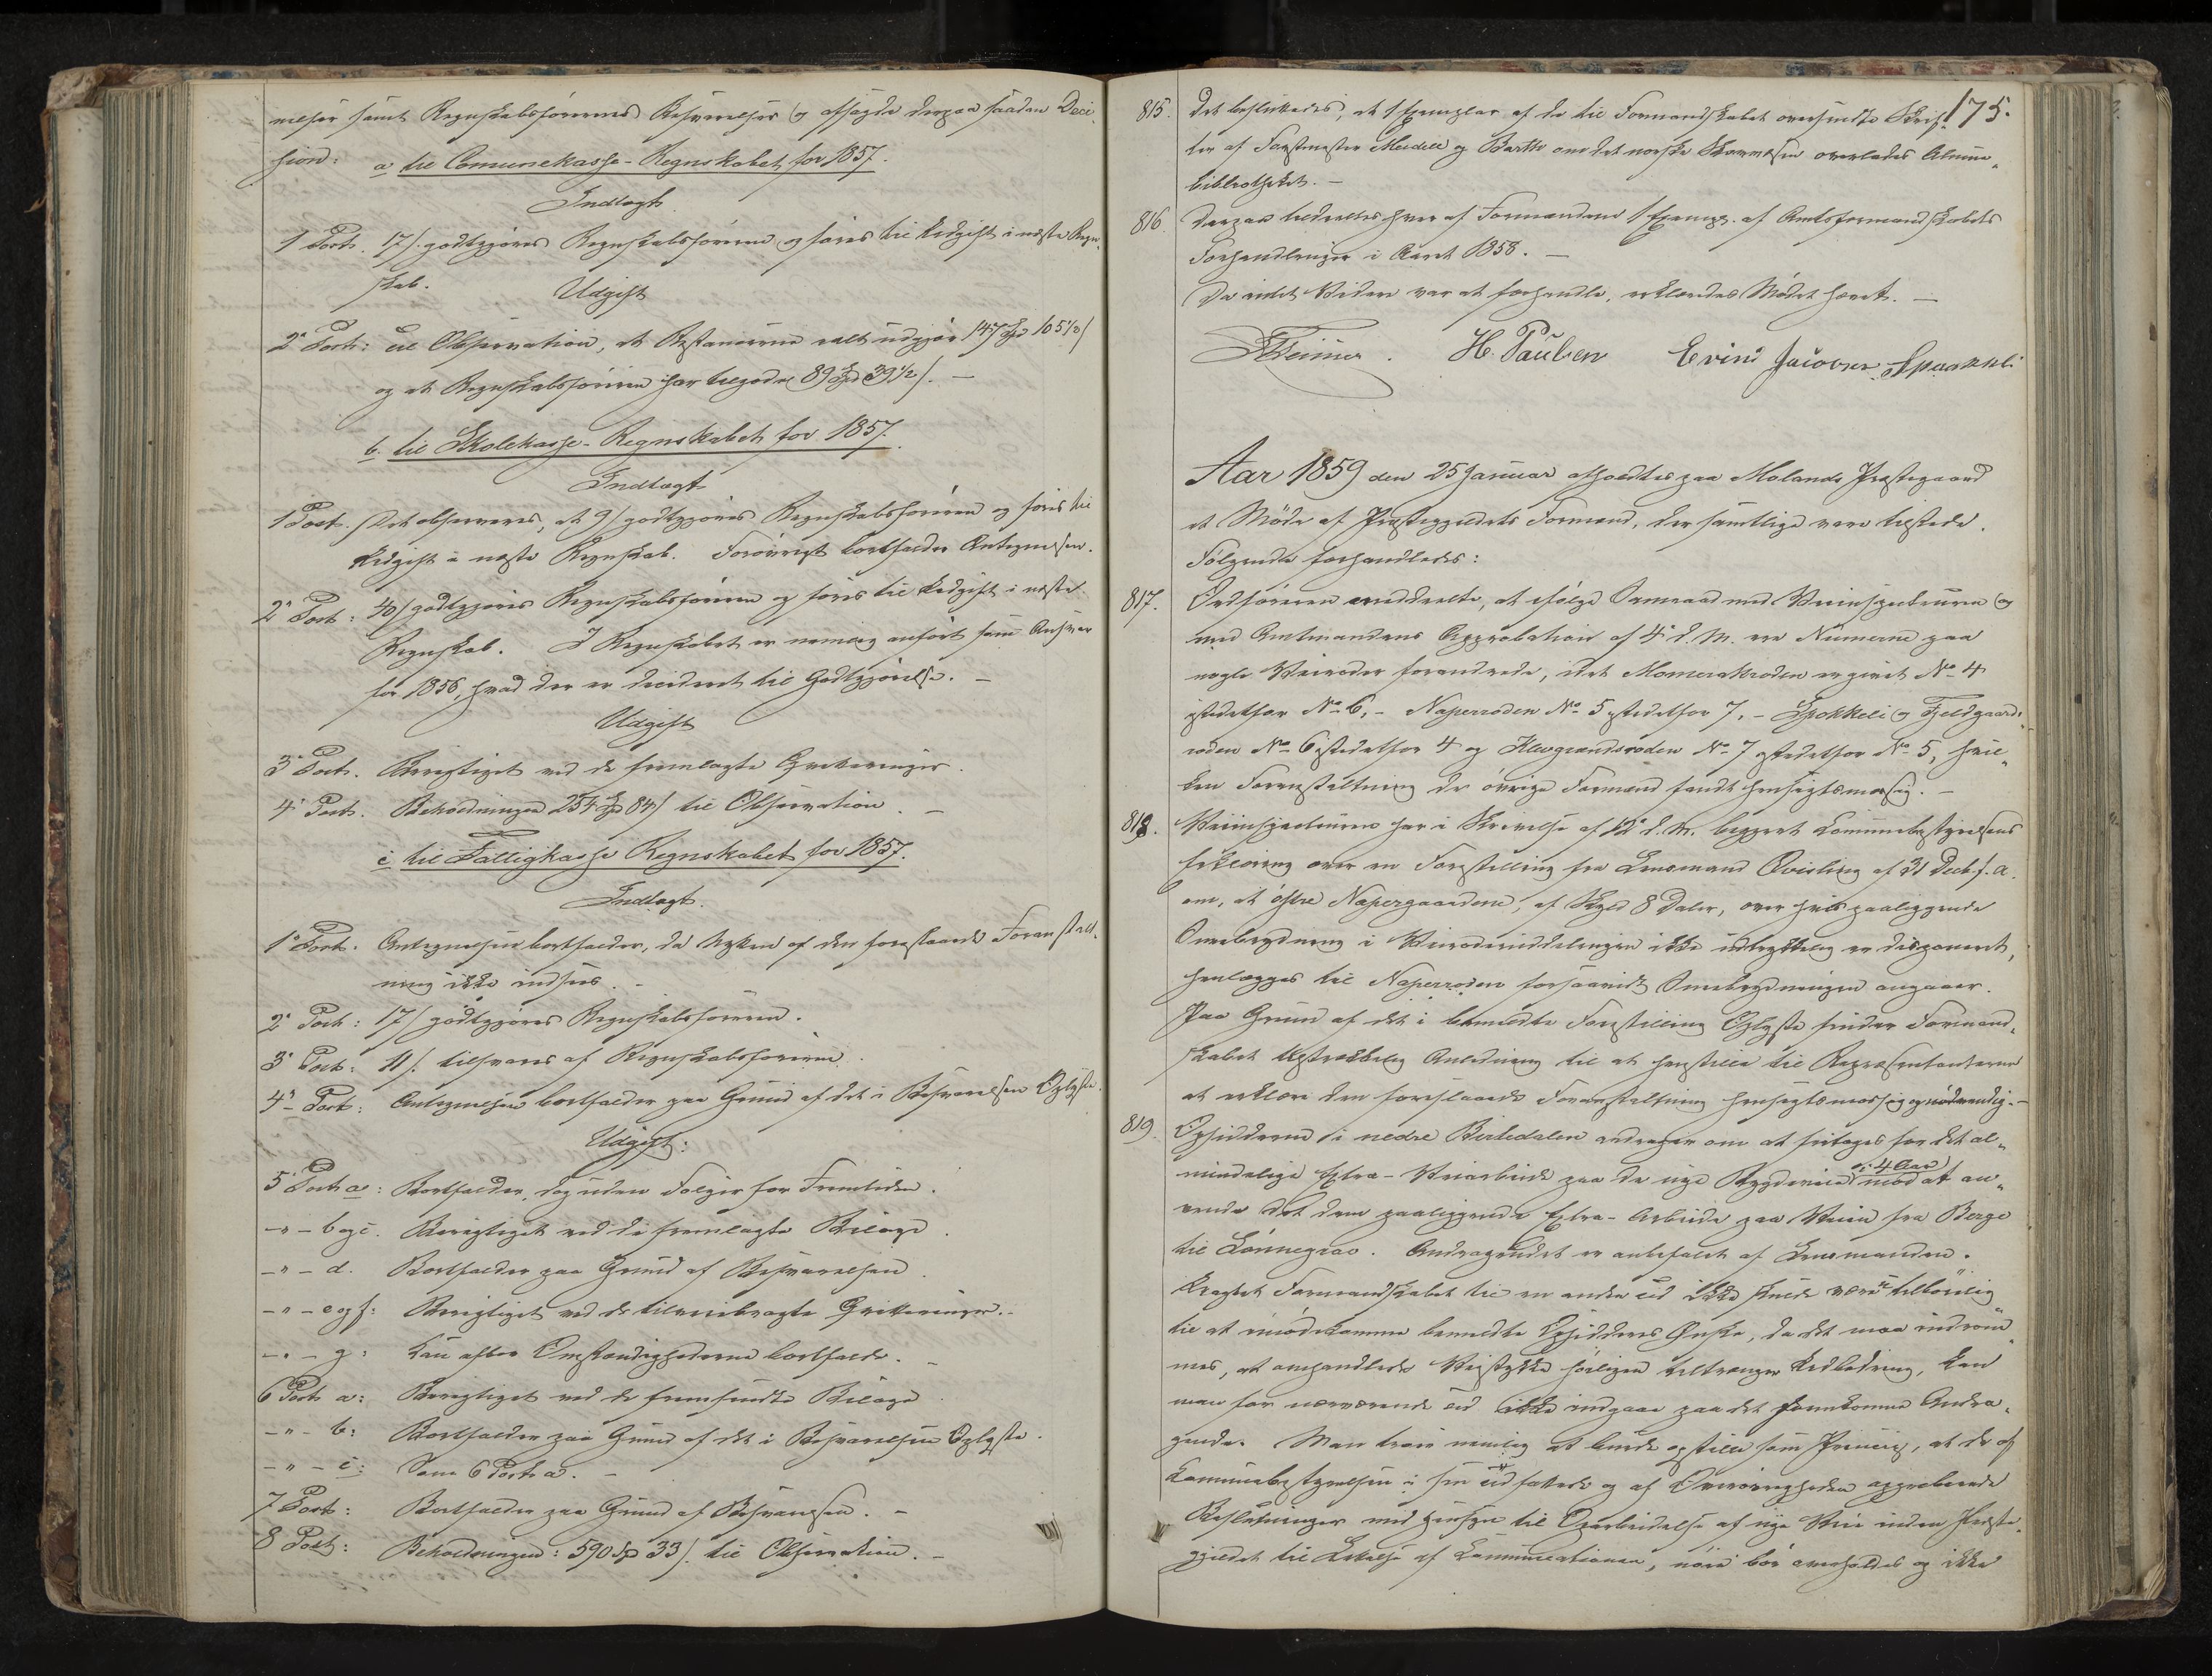 nelser samt Regnskabsførerens Besvarelser og afsagde derpaa saadan Deci-
sion: a. til Comunekasse-Regnskabet for 1857.
Indtægt
1 Post. 17 s. godtgjøres Regnskabsføreren og føres til Udgift i næste Regn-
skab.
Udgift
2. Post: til Observation, at Restancerne ialt udgjør 147 Spd 105 1/2 s
og at Regnskabsføreren har tilgode 89 Spd 39 1/2 s. —
b. til Skolekasse-Regnskabet for 1857.
Indtægt
1 Post. Det observeres, at 9 s godtgjøres Regnskabsføreren og føres til
Udgift i næste Regnskab. Forøvrigt bortfalder Antegnelsen.
2. Post: 40 s godtgjøres Regnskabsføreren og føres til Udgift i næste
Regnskab. I Regnskabet er nemlig anført som Ansvar
for 1856, hvad der er decideret til Godtgjørelse. —
Udgift
3. Post. Berigtiget ved de fremlagte Qvitteringer.
4. Post. Beholdningen 254 Spd 84 s til Observation. —
c. til Fattigkasse Regnskabet for 1857.
Indtægt.
1. Post. Antegnelsen bortfalder, da Nytten af den foreslaaede Foranstalt-
ning ikke indsees. —
2. Post: 17 s godtgjøres Regnskabsføreren.
3. Post: 11 s. tilsvares af Regnskabsføreren.
4. Post: Antegnelsen bortfalder paa Grund af det i Besvarelsen Oplyste.
Udgift:
5 Post a: Bortfalder, dog uden Følger for Fremtiden.
— " — b og c. Berigtiget ved de fremlagte Bilage.
— " — d. Bortfalder paa Grund af Besvarelsen.
— " — e og f: Berigtiget ved de tilveiebragte Qvitteringer. —
— " — g: Kan efter Omstændighederne bortfalde. —
6 Post a: Berigtiget ved de fremsendte Bilage
— " — b: Bortfalder paa Grund af det i Besvarelsen Oplyste.
— " — c: Som 6 Post a. —
7 Post: Bortfalder paa Grund af Besvarelsen. —
8 Post: Beholdningen: 590 Spd 33 s. til Observation. —
175.
815. Det besluttedes, at 1 Exemplar af de til Formandskabet oversendte Skrif-
ter af Forstmester Meidell og Barth om det norske Skovvæsen overlades Almue-
bibliotheket. —
816. Derpaa uddeeltes hver af Formændene 1 Exempl. af Amtsformandskabets
Forhandlinger i Aaret 1858. —
Da intet Videre var at forhandle, erklæredes Mødet hævet. —
H. Paulsen Evind Jacobsen Spaakkeli
Aar 1859 den 25 Januar afholdtes paa Molands Præstegaard
et Møde af Præstegjeldets Formænd, der samtlige vare tilstede.
Følgende forhandledes:
817. Ordføreren meddeelte, at ifølge Samraad med Veiinspecteuren og
med Amtmandens Approbation af 4. d. M. ere Numerne paa
nogle Veiroder forandrede, idet Momerakroden er givet No 4
istedetfor No 6, — Naperroden No 5 istedetfor 7, — Spokkeli og Fjeldgaards-
roden No 6 istedetfor 4 og Klevgrændsroden No 7 istedetfor No 5, hvil-
ken Foranstaltning de øvrige Formænd fandt hensigtsmæssig. —
818. Veiinspecteuren har i Skrivelse af 12. d. M. begjert Communebestyrelsens
Erklæring over en Forestilling fra Lensmand Qvisling af 31 Decb. f. A.
om, at østre Napergaardene, af Skyld 8 Daler, over hvis paaliggende
Snebrydning i Veirodeinddelingen ikke udtrykkelig er disponeret,
henlægges til Naperroden forsaavidt Snebrydningen angaaer.
Paa Grund af det i bemeldte Forestilling Oplyste finder Formand-
skabet tilstrækkelig Anledning til at henstille til Repræsentanterne
at erklære den foreslaaede Foranstaltning hensigtsmæssig og nødvendig. —
819. Opsidderne i nedre Birtedalen andrager om at fritages for det al-
mindelige Extra-Veiarbeide paa de nye Bygdeveie i 4 Aar mod at an-
vende det dem paaliggende Extra-Arbeide paa Veien fra Berge
til Lønnegrav. Andragendet er anbefalet af Lensmanden.
Uagtet Formandskabet til en anden Tid ikke skulde være utilbøielig
til at imødekomme bemeldte Opsidderes Ønske, da det maa indrøm-
mes, at omhandlede Veistykke høiligen tiltrænger Udbedring, kan
man for nærværende Tid ikke indgaae paa det fremkomne Andra-
gende. Man troer nemlig at burde opstille som Princip, at de af
Kommunebestyrelsen i sin Tid fattede og af Overøvrigheden approberede
Beslutninger med Hensyn til Oparbeidelse af nye Veie inden Præste-
gjeldet til Lettelse af Communicationen, nøie bør overholdes og ikke